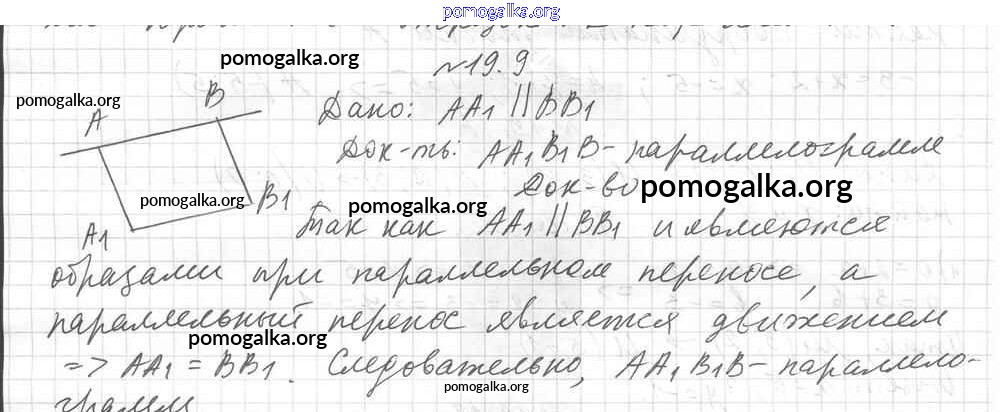 pomogalka.org
№19.9
pomogalka.org
pomogalka.org
A
B
Дано: AA1 || BB1
Док-ть: AA1B1B - параллелограмм
Док-во pomogalka.org
pomogalka.org
pomogalka.org
B1
A1
Так как AA1 || BB1 и являются
образами при параллельном переносе, а
параллельный перенос является движением
pomogalka.org
=> AA1 = BB1. Следовательно, AA1B1B - параллело-
pomogalka.org
грамм